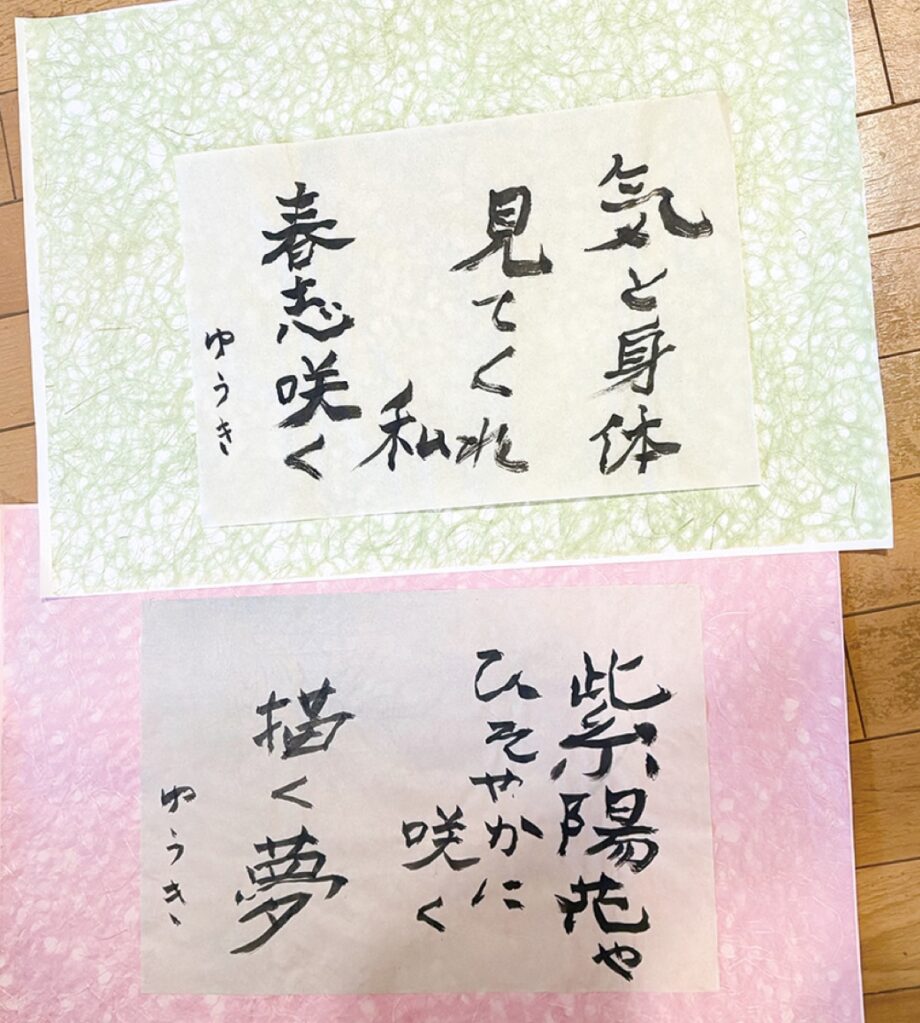 気と身体
見てくれ
私
春志咲く
ゆうき
紫陽花や
ひそやかに
咲く
描く夢
ゆうき